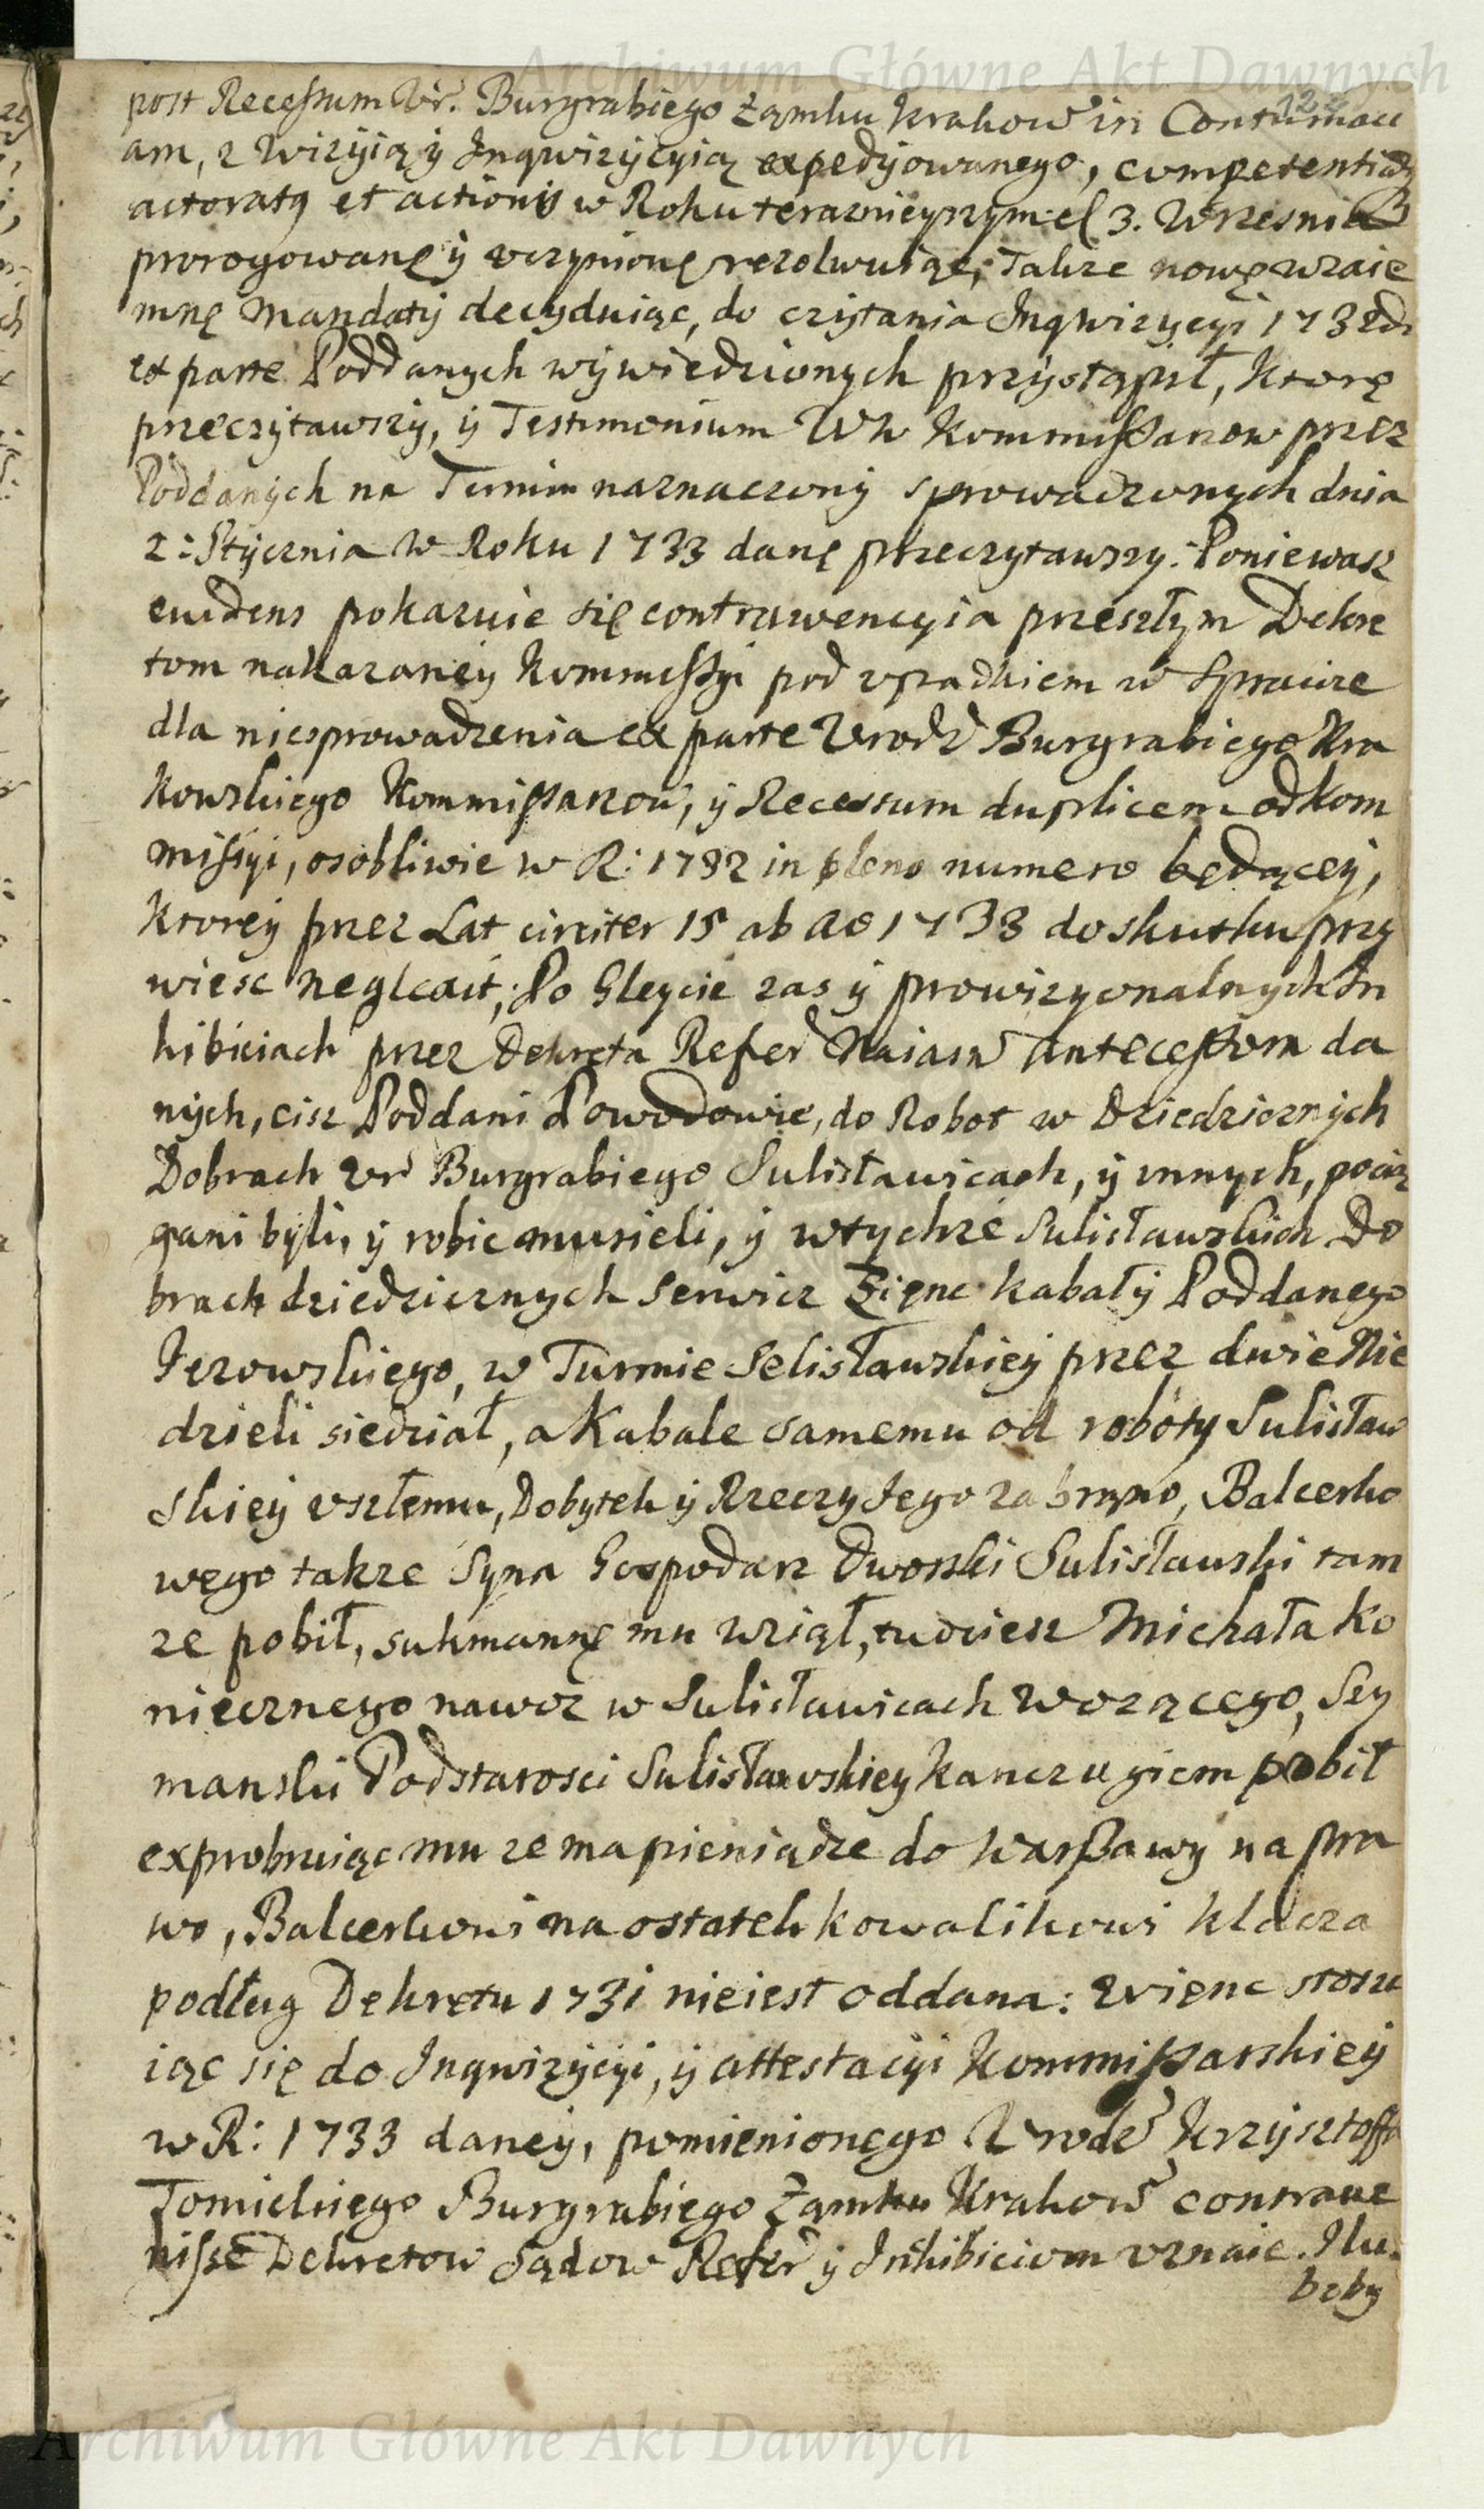 Archiwum Główne Akt Dawnych
post Recessum Ur. Burgrabiego Zamku Krakow in Contumaci
am, z Wizyią y Inqwizycyią expedyowanego, competentią
actoratą et actionis w Roku teraznieyszym d 3. Wrzesnia
prorogowanę y uczynionę rezolwuiąc, Takze nowe wzaie
mnę Mandaty decyduiąc, do czytania Inqwizycyi 1732do
ex parte Poddanych wywiedzionych przystąpił, ktorę
przeczytawszy, y Testimonium WW Kommissarzow przez
Poddanych na Termin naznaczony sprowadzonych dnia
2: Stycznia w Roku 1733 danę przeczytawszy: Poniewasz
evidens pokazuie się contrawencyia przeszłym Dekre
tom nakazaney Kommissyi pod upadkiem w Sprawie
dla niesprowadzenia ex parte Urodz Burgrabiego Kra
kowskiego Kommissarzow, y Recessum duplicem od kom
missyi, osobliwie w R: 1732 in pleno numero będącey,
ktorey przez Lat circiter 15 ab Ao 1733 do skutku przy
wiesc neglexit; Po Gleycie zas y prowizyonalnych In
hibiciach przez Dekreta Refer Naiasn Antecessom da
nych, cisz Poddani Powodowie, do Robot w Dziedzicznych
Dobrach Ur Burgrabiego Sulisławicach, y innych, pocią
gani byli, y robic musieli, y w tychze Sulisławskich Do
brach dziedzicznych Serwicz Zięnc kabały Poddanego
Jezowskiego, w Turmie Selisławskiey przez dwie Nie
dzieli siedział, a Kabale samemu od roboty Sulisław
skiey uszłemu, Dobytek y Rzeczy Jego zabrąno, Balcerko
wego takze Syna Gospodarz Dworski Sulisławski tam
ze pobił, sukmannę mu wziął, tudziesz Michała Ko
niecznego nawoz w Sulisławicach wozącego, Szy
manski Podstarosci Sulisławskiey kanczugiem pobił
exprobruiąc mu ze ma pieniądze do Warszawy na pra
wo, Balcerkowi na ostatek kowalikowi klacza
podług Dekretu 1731 nieiest oddana: Zwięnc stosu
iąc się do Inqwizycyi, y attestacyi Kommissarskiey
w R: 1733 daney, pomienionego Urodz Krzysztoffa
Tomickiego Burgrabiego Zamku Krakow contrave
nisse Dekretow Sądow Refer y Inhibiciom uznaie. Ilu
boby
Archiwum Główne Akt Dawnych